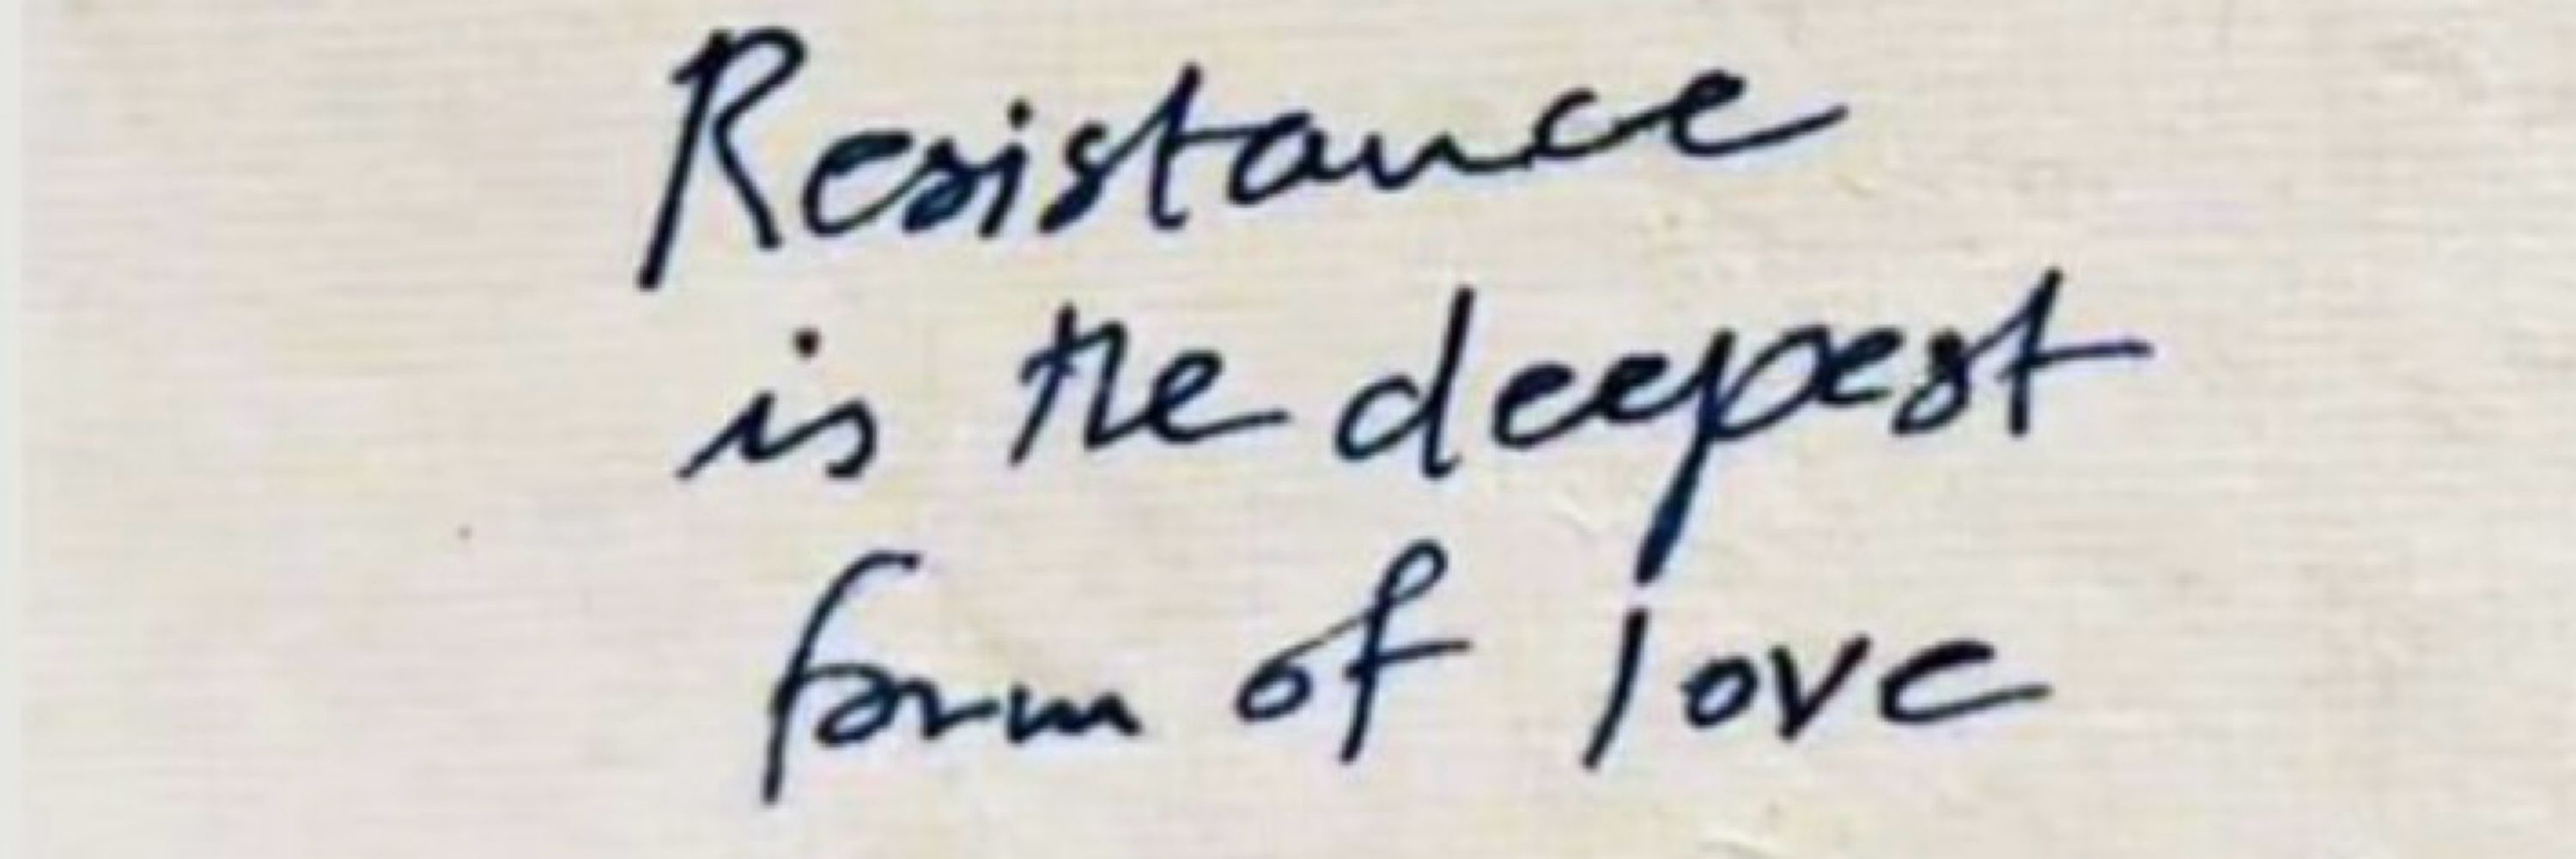 Resistance
is the deepest
form of love